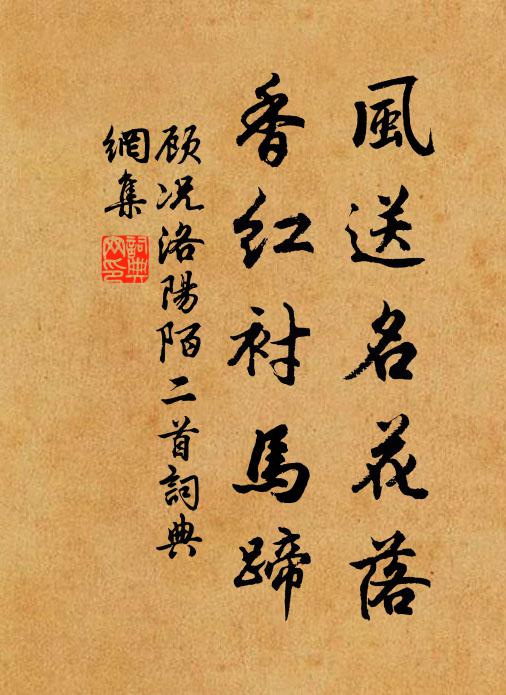 風送名花落
香紅衬馬蹄
顾况洛陽陌二首詞典
網集
詞典
网印